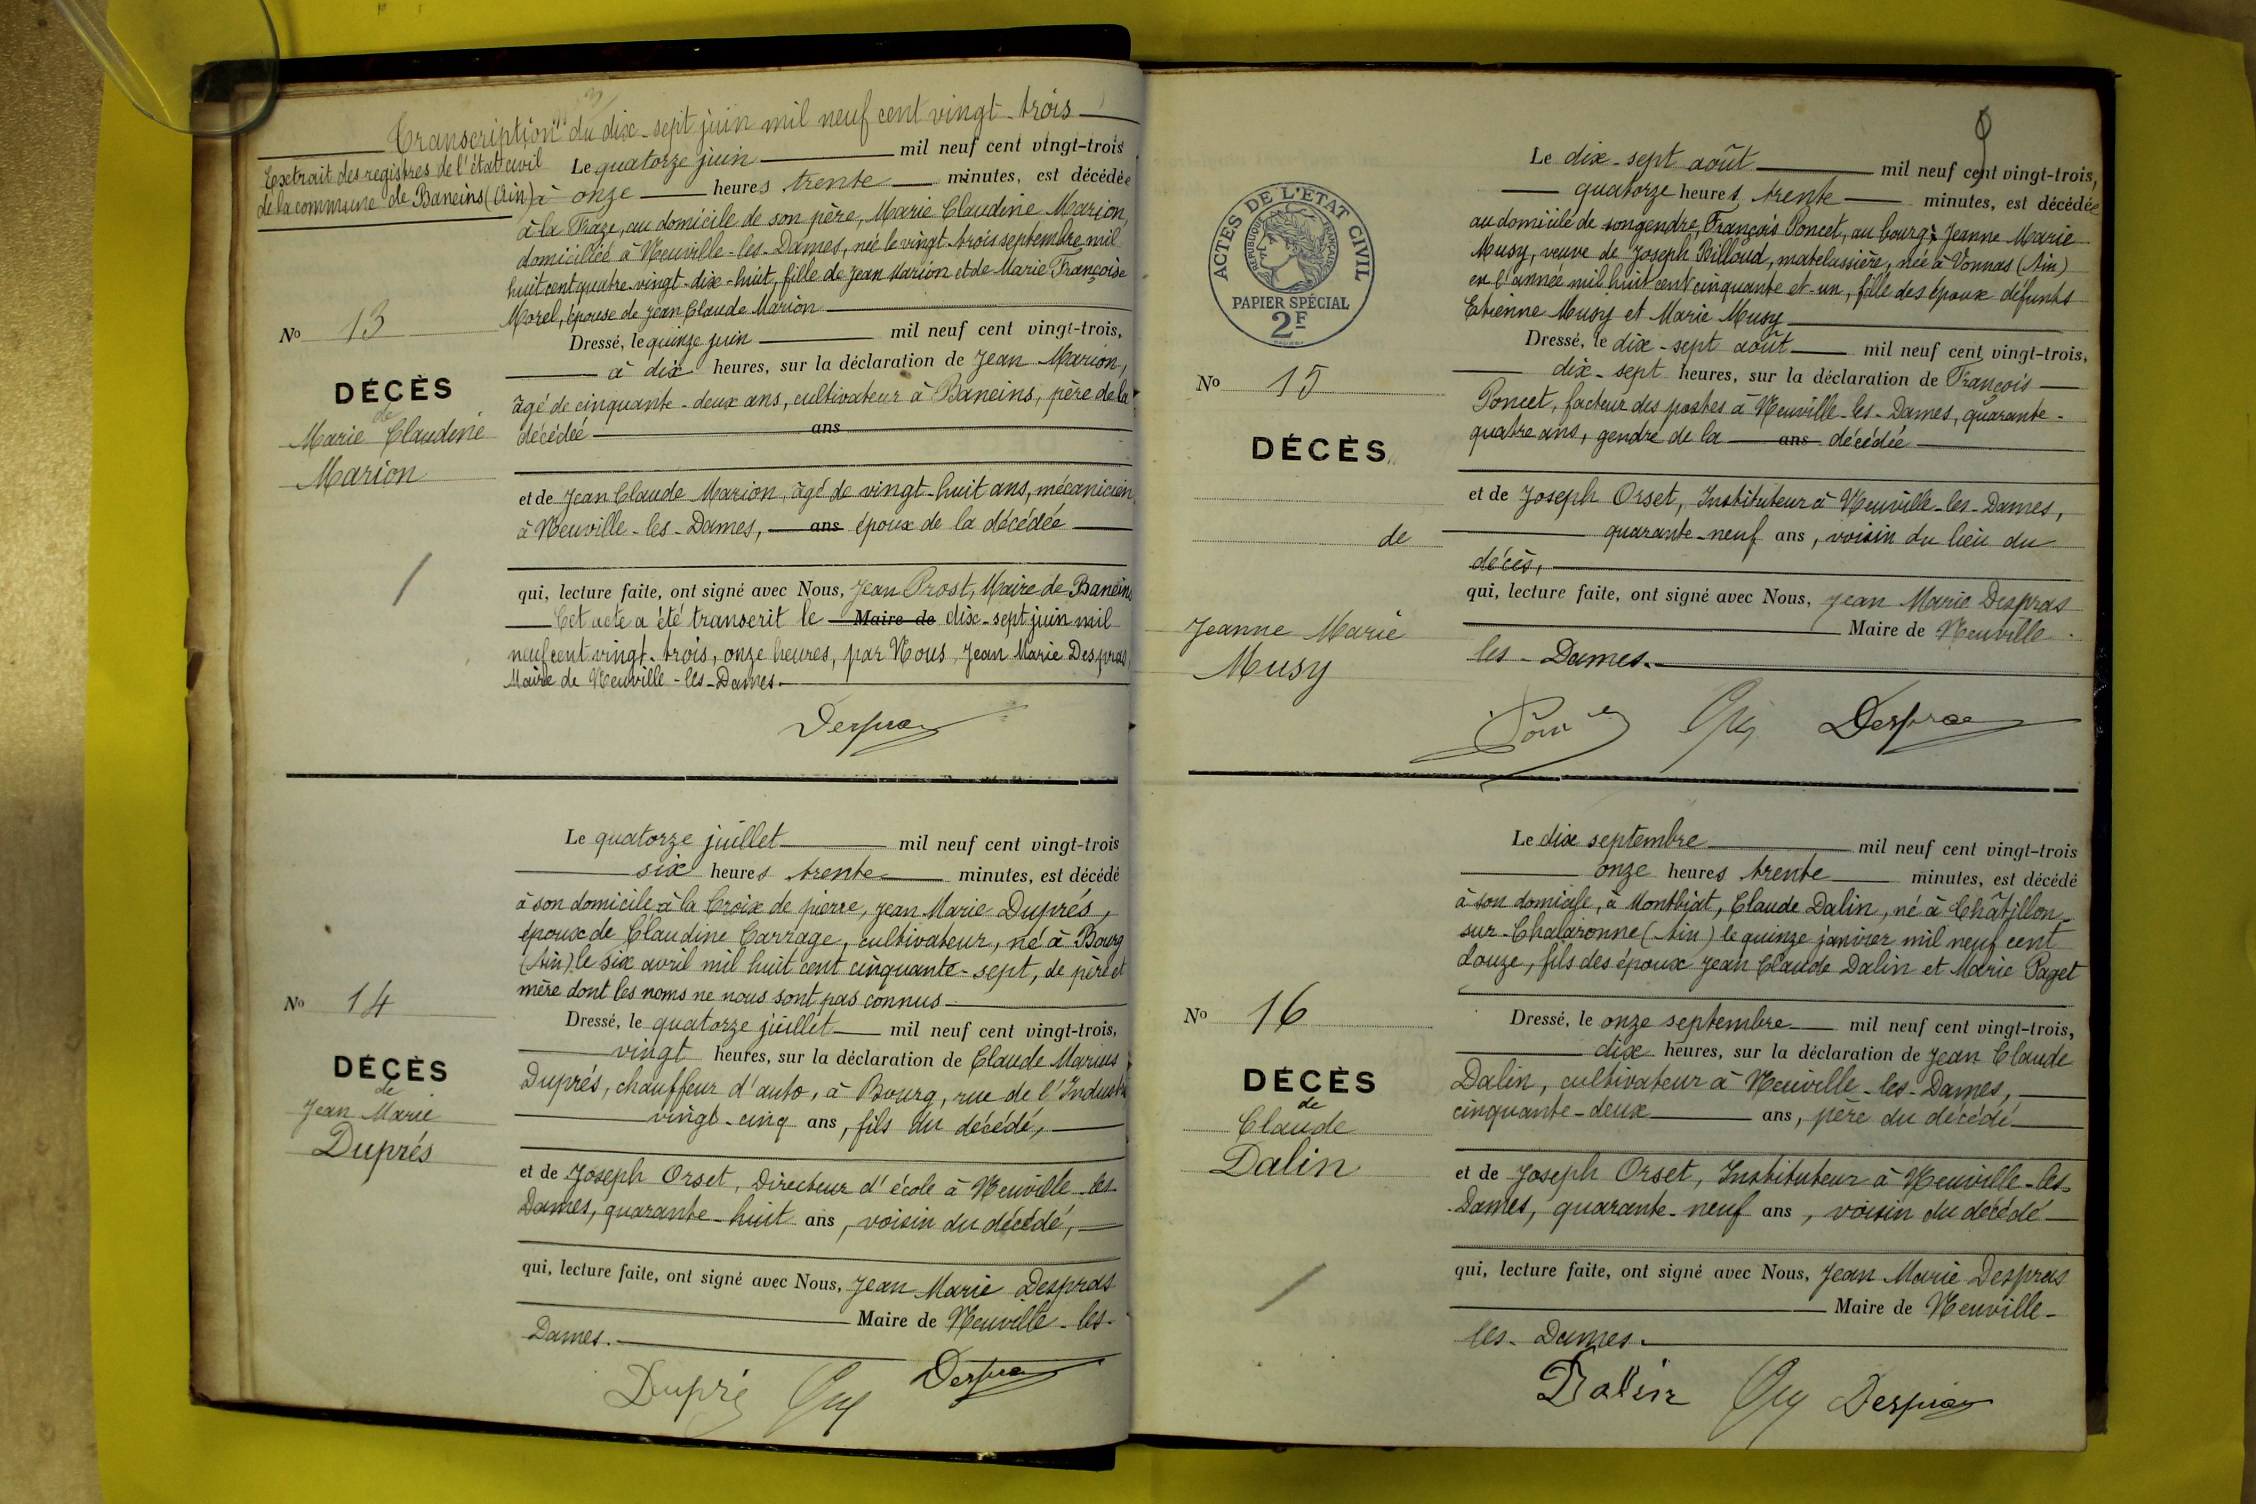 Transcription du dix-sept juin mil neuf cent vingt-trois
Extrait des registres de l'état civil
de la commune de Baneins (Ain)
Le quatorze juin mil neuf cent vingt-trois
à onze heures trente minutes, est décédée
à la Fraze, au domicile de son père, Marie Claudine Marion,
domiciliée à Neuville-les-Dames, née le vingt-trois septembre mil
huit cent quatre-vingt-dix-huit, fille de Jean Marion et de Marie Françoise
Morel, épouse de Jean Claude Marion
No 13
DÉCÈS
de
Marie Claudine
Marion
Dressé, le quinze juin mil neuf cent vingt-trois,
à dix heures, sur la déclaration de Jean Marion,
âgé de cinquante-deux ans, cultivateur à Baneins, père de la
décédée ans
et de Jean Claude Marion, âgé de vingt-huit ans, mécanicien
à Neuville-les-Dames, ans époux de la décédée
qui, lecture faite, ont signé avec Nous, Jean Prost, Maire de Baneins
Cet acte a été transcrit le Maire de dix-sept juin mil
neuf cent vingt-trois, onze heures, par Nous, Jean Marie Despras
Maire de Neuville-les-Dames.
Despras
Le quatorze juillet mil neuf cent vingt-trois
six heures trente minutes, est décédé
à son domicile, à la Croix de pierre, Jean Marie Duprés,
époux de Claudine Carrage, cultivateur, né à Bourg
(Ain), le six avril mil huit cent cinquante-sept, de père et
mère dont les noms ne nous sont pas connus
No 14
DÉCÈS
de
Jean Marie
Duprés
Dressé, le quatorze juillet mil neuf cent vingt-trois,
vingt heures, sur la déclaration de Claude Marius
Duprés, chauffeur d'auto, à Bourg, rue de l'Industrie
vingt-cinq ans, fils du décédé,
et de Joseph Orset, Directeur d'école à Neuville-les-
Dames, quarante-huit ans, voisin du décédé,
qui, lecture faite, ont signé avec Nous, Jean Marie Despras
Maire de Neuville-les-
Dames.
Dupré Despras
ACTES DE L'ETAT CIVIL
REPUBLIQUE FRANÇAISE
PAPIER SPÉCIAL
2F
Le dix-sept août mil neuf cent vingt-trois,
quatorze heures trente minutes, est décédée
au domicile de son gendre, François Poncet, au bourg, Jeanne Marie
Musy, veuve de Joseph Billoud, matelassière, née à Vonnas (Ain)
en l'année mil huit cent cinquante et un, fille des époux défunts
Etienne Musy et Marie Musy
No 15
DÉCÈS
de
Jeanne Marie
Musy
Dressé, le dix-sept août mil neuf cent vingt-trois,
dix-sept heures, sur la déclaration de François
Poncet, facteur des postes à Neuville-les-Dames, quarante-
quatre ans, gendre de la ans décédée
et de Joseph Orset, Instituteur à Neuville-les-Dames,
quarante-neuf ans, voisin du lieu du
décès,
qui, lecture faite, ont signé avec Nous, Jean Marie Despras
Maire de Neuville-
les-Dames.
Despras
Le dix septembre mil neuf cent vingt-trois
onze heures trente minutes, est décédé
à son domicile, à Montbiat, Claude Dalin, né à Châtillon-
sur-Chalaronne (Ain) le quinze janvier mil neuf cent
douze, fils des époux Jean Claude Dalin et Marie Paget
No 16
DÉCÈS
de
Claude
Dalin
Dressé, le onze septembre mil neuf cent vingt-trois,
dix heures, sur la déclaration de Jean Claude
Dalin, cultivateur à Neuville-les-Dames,
cinquante-deux ans, père du décédé
et de Joseph Orset, Instituteur à Neuville-les-
Dames, quarante-neuf ans, voisin du décédé
qui, lecture faite, ont signé avec Nous, Jean Marie Despras
Maire de Neuville-
les-Dames.
Dalin Despras